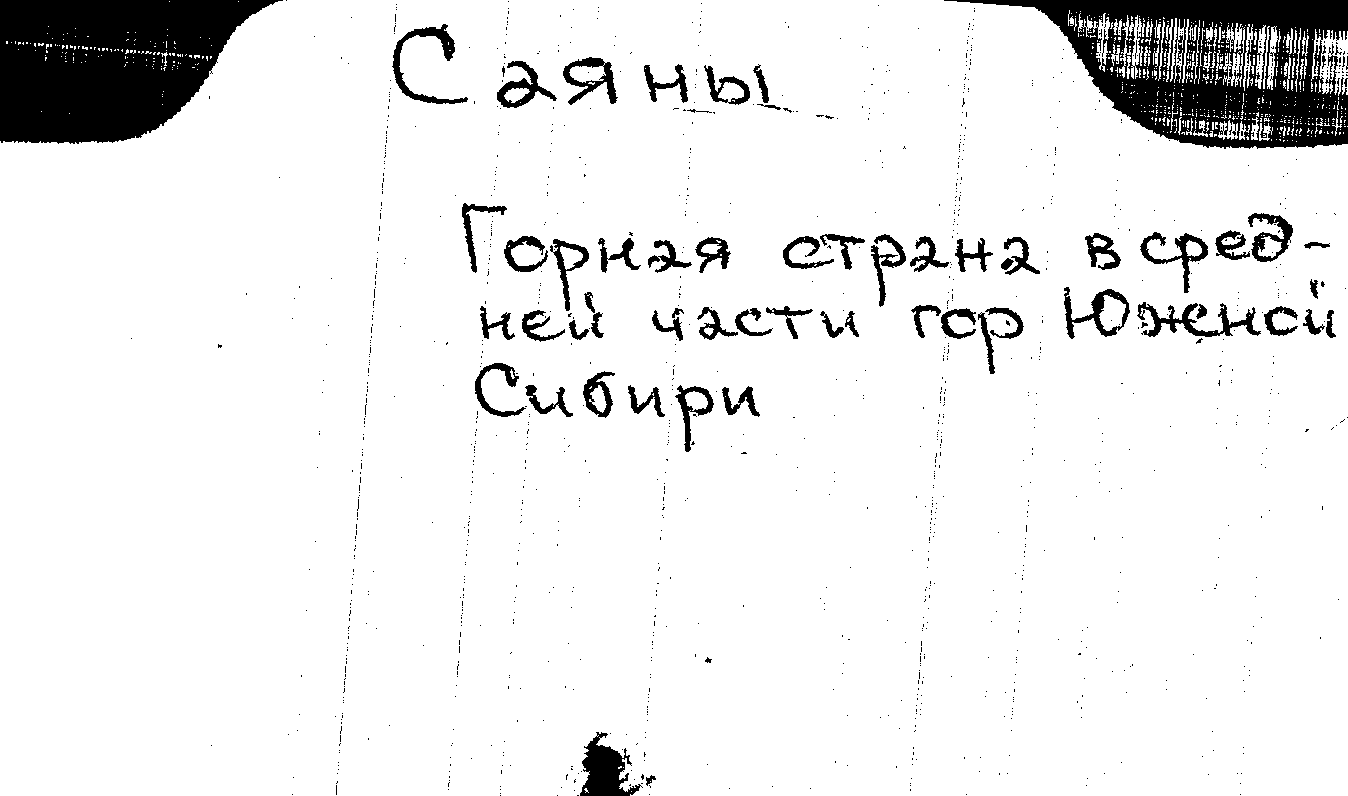 Саяны
Горная страна в сред-
ней части гор Южной
Сибири